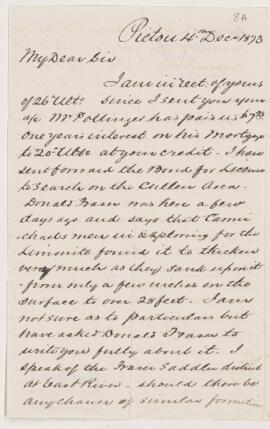 8A
Pictou 4th Decr 1873
My Dear Sir
I am in rect. of yours
of 26th Ulto. since I sent you your
a/c Mr Pollinger has paid us
one years interest on his Mortgage
to 20th Ulto at your credit. I have
sent forward the Bond for License
to Search on the Cullen Area.
Donald Fraser was here a few
days ago and says that Carmi-
chaels men in Exploring for the
Limonite found it to thicken
very much as they sank upon it
- from only a few inches on the
surface to over 20 feet. I am
not sure as to particulars but
have asked Donald Fraser to
write you fully about it. I
speak of the Fraser Saddler district
at East River. Should there be
any chance of similar formation